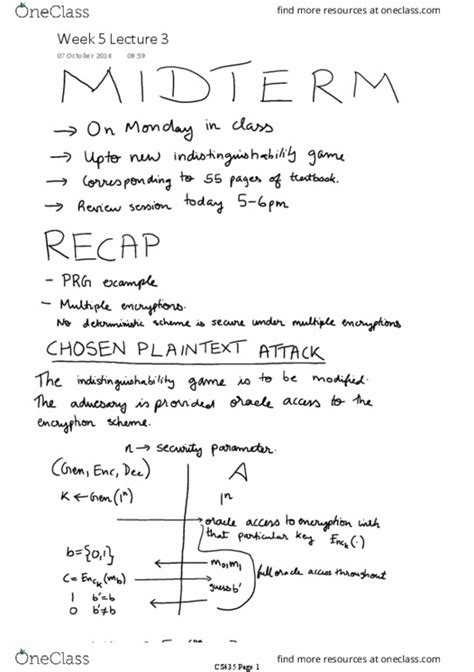 OneClass
find more resources at oneclass.com
Week 5 Lecture 3
07 October 2016 09:59
MIDTERM
→ On Monday in class
→ Upto new indistinguishability game
→ Corresponding to 55 pages of textbook.
→ Review session today 5-6pm
RECAP
- PRG example
- Multiple encryptions.
No deterministic scheme is secure under multiple encryptions
CHOSEN PLAINTEXT ATTACK
The indistinguishability game is to be modified.
The adversary is provided oracle access to the
encryption scheme.
n → security parameter.
(Gen, Enc, Dec) A
K ← Gen(1ⁿ) 1ⁿ
oracle access to encryption with
that particular key Encₖ(·)
b={0,1} m₀,m₁
full oracle access throughout
C = Encₖ(m_b) guess b'
1 b'=b
0 b'≠b
OneClass
CS435 Page 1
find more resources at oneclass.com